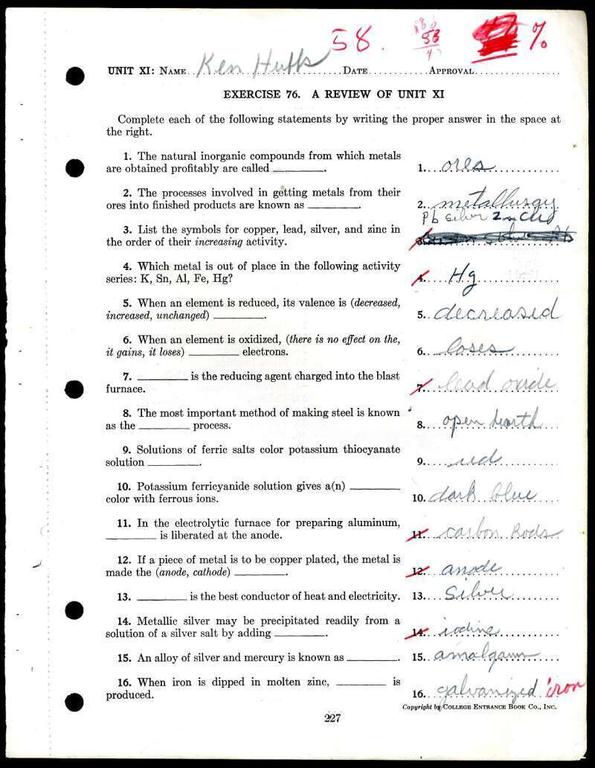 58. 53 %
UNIT XI: NAME Ken Huffs DATE APPROVAL
EXERCISE 76. A REVIEW OF UNIT XI
Complete each of the following statements by writing the proper answer in the space at
the right.
1. The natural inorganic compounds from which metals
are obtained profitably are called ________. 1. ores
2. The processes involved in getting metals from their
ores into finished products are known as ________. 2. metallurgy
3. List the symbols for copper, lead, silver, and zinc in
the order of their increasing activity. 3. Pb silver Zn
4. Which metal is out of place in the following activity
series: K, Sn, Al, Fe, Hg? 4. Hg
5. When an element is reduced, its valence is (decreased,
increased, unchanged) ________. 5. decreased
6. When an element is oxidized, (there is no effect on the,
it gains, it loses) ________ electrons. 6. loses
7. ________ is the reducing agent charged into the blast
furnace. 7. lead oxide
8. The most important method of making steel is known
as the ________ process. 8. open hearth
9. Solutions of ferric salts color potassium thiocyanate
solution ________. 9. red
10. Potassium ferricyanide solution gives a(n) ________
color with ferrous ions. 10. dark blue
11. In the electrolytic furnace for preparing aluminum,
________ is liberated at the anode. 11. carbon Rods
12. If a piece of metal is to be copper plated, the metal is
made the (anode, cathode) ________. 12. anode
13. ________ is the best conductor of heat and electricity. 13. Silver
14. Metallic silver may be precipitated readily from a
solution of a silver salt by adding ________. 14. iodine
15. An alloy of silver and mercury is known as ________. 15. amalgam
16. When iron is dipped in molten zinc, ________ is
produced. 16. galvanized iron
Copyright by COLLEGE ENTRANCE BOOK CO., INC.
227